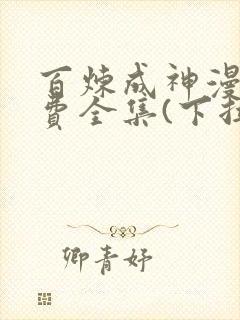 百炼成神漫
费全集(下拉
卿青妤